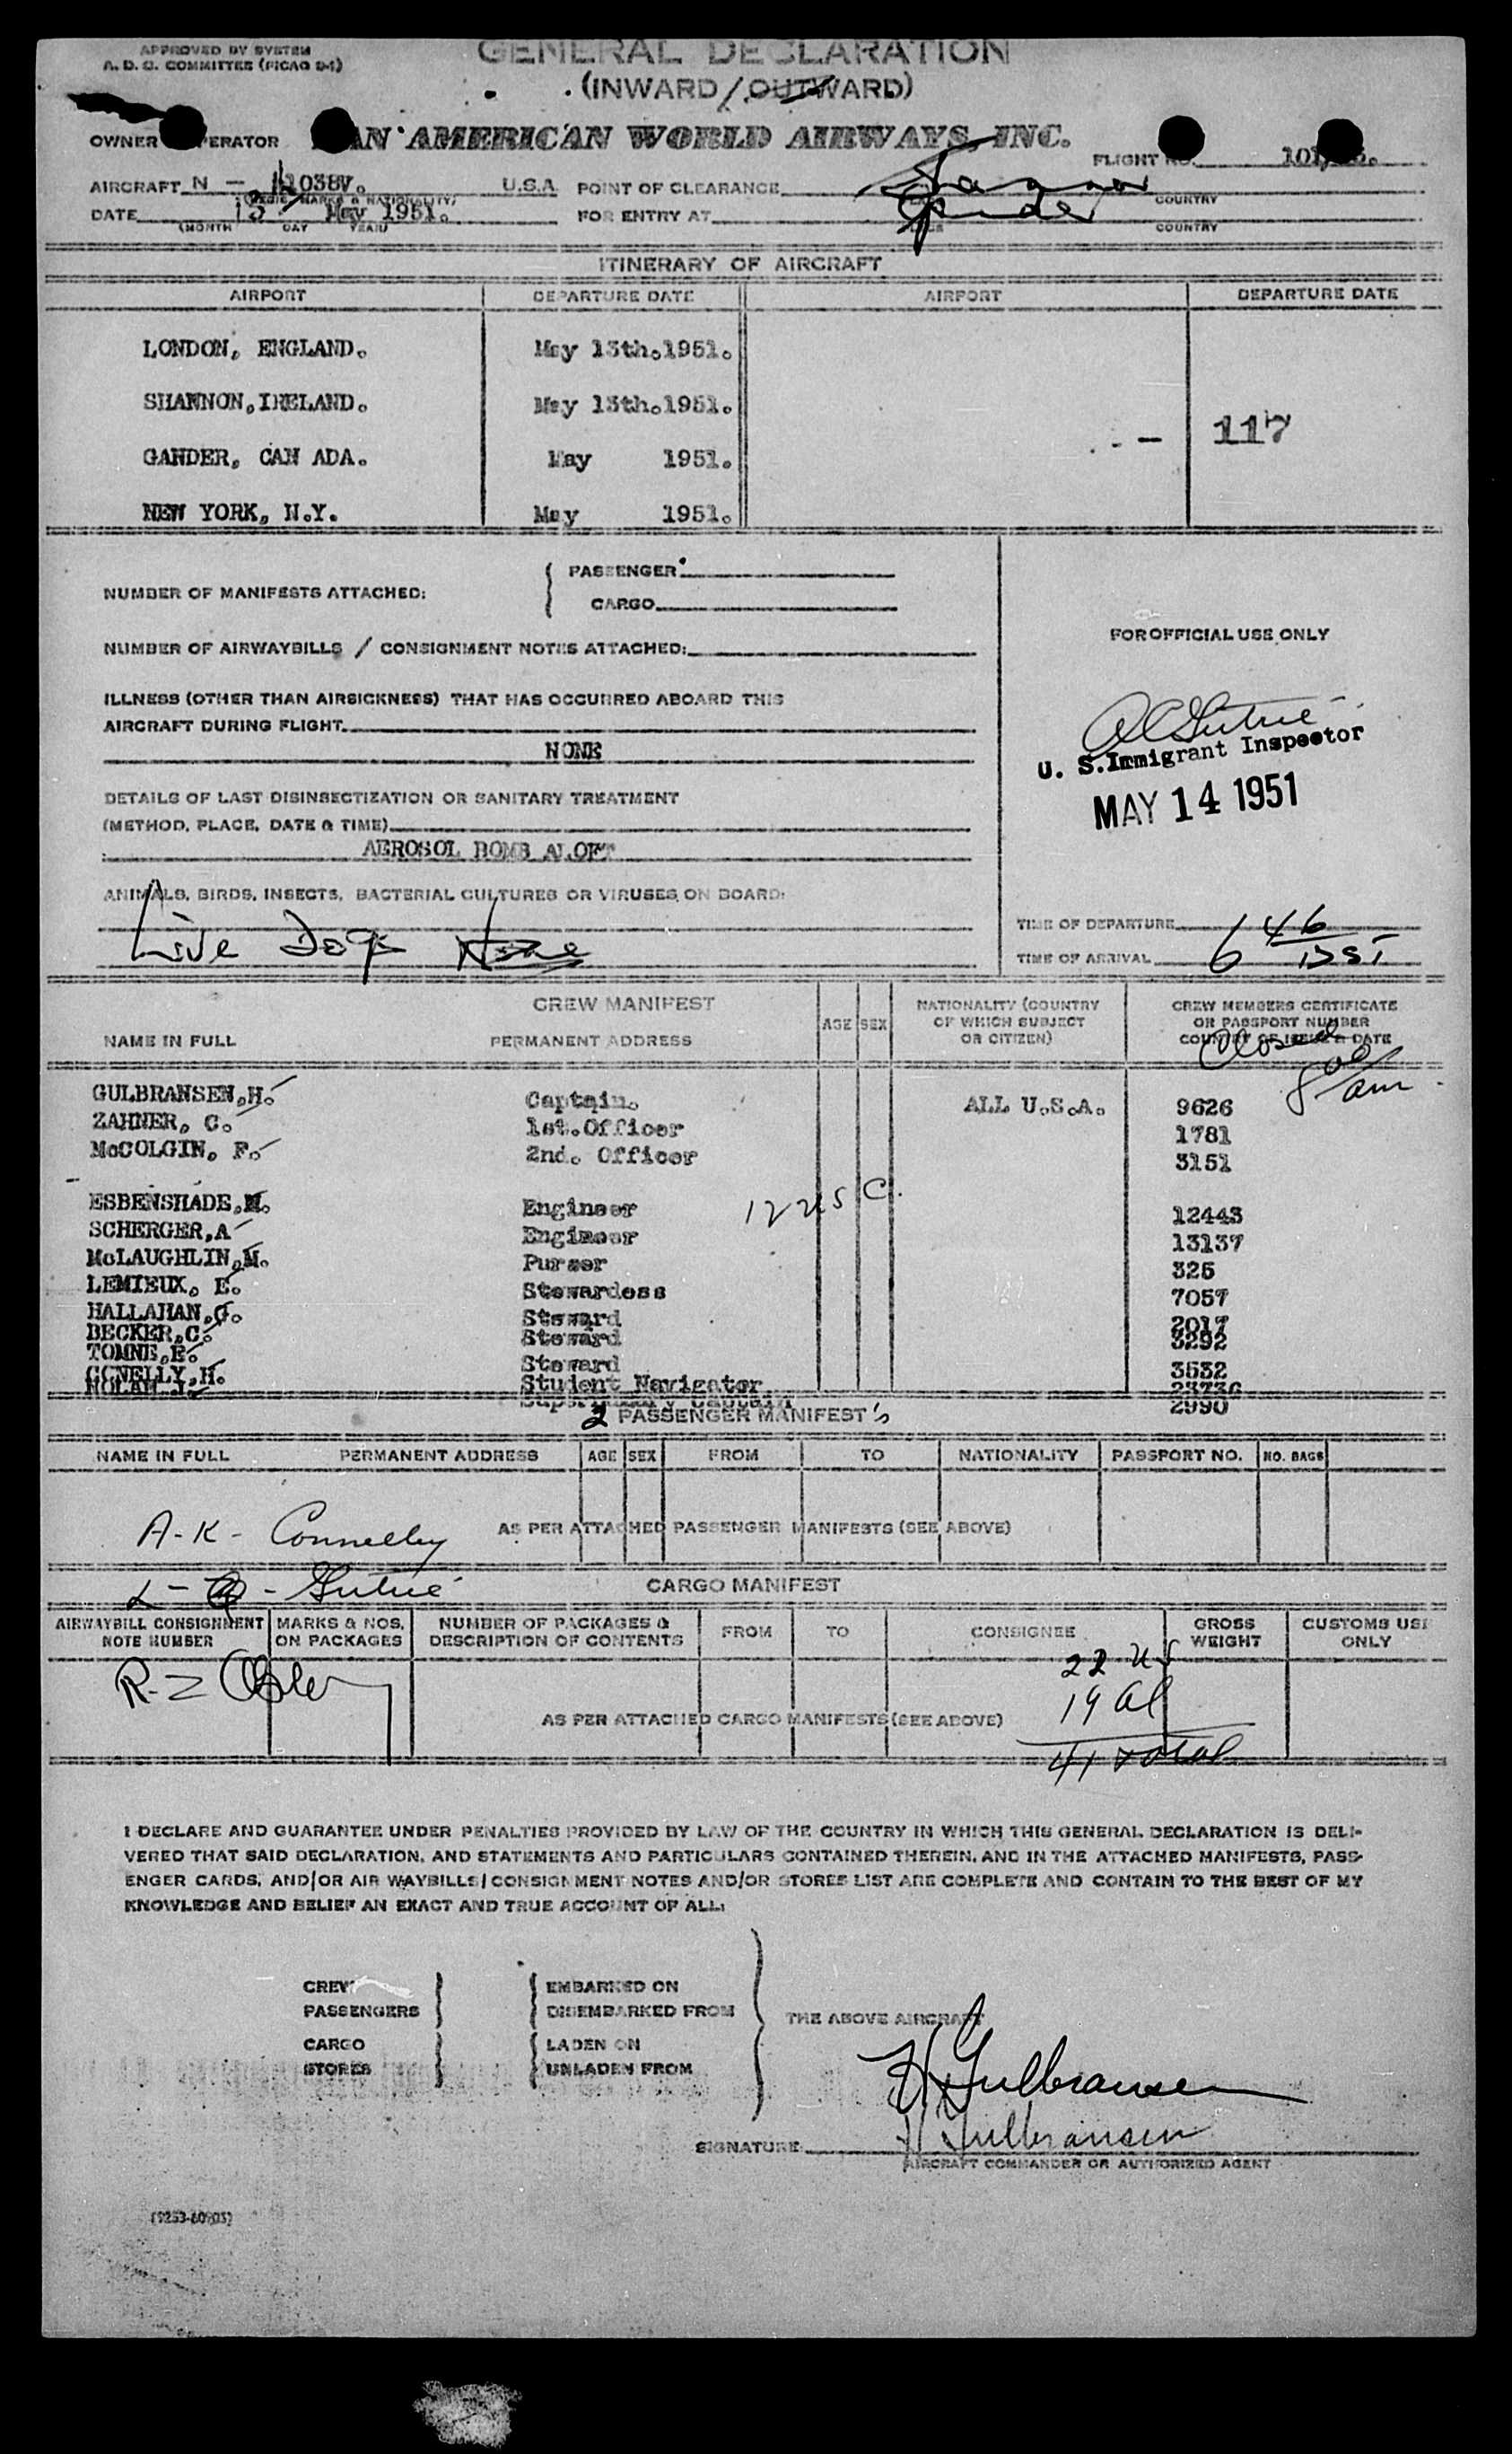 APPROVED BY SYSTEM
A. D. O. COMMITTEE (PICAO D-1)
GENERAL DECLARATION
(INWARD / OUTWARD)
OWNER PERATOR AN AMERICAN WORLD AIRWAYS, INC.
FLIGHT NO.
AIRCRAFT N - 1038V. U.S.A. POINT OF CLEARANCE Shannon COUNTRY
DATE 13 May 1951. FOR ENTRY AT Gander COUNTRY
(MONTH DAY YEAR)
ITINERARY OF AIRCRAFT
AIRPORT DEPARTURE DATE AIRPORT DEPARTURE DATE
LONDON, ENGLAND. May 13th.1951.
SHANNON,IRELAND. May 13th.1951.
117
GANDER, CAN ADA. May 1951.
NEW YORK, N.Y. May 1951.
NUMBER OF MANIFESTS ATTACHED: PASSENGER
CARGO
FOR OFFICIAL USE ONLY
NUMBER OF AIRWAYBILLS / CONSIGNMENT NOTES ATTACHED:
ILLNESS (OTHER THAN AIRSICKNESS) THAT HAS OCCURRED ABOARD THIS
AIRCRAFT DURING FLIGHT.
NONE
U. S. Immigrant Inspector
MAY 14 1951
DETAILS OF LAST DISINSECTIZATION OR SANITARY TREATMENT
(METHOD, PLACE, DATE & TIME)
AEROSOL BOMB ALOFT
ANIMALS, BIRDS, INSECTS, BACTERIAL CULTURES OR VIRUSES ON BOARD:
Live Dogs None
TIME OF DEPARTURE
TIME OF ARRIVAL 6 46 DST
CREW MANIFEST
NAME IN FULL PERMANENT ADDRESS AGE SEX NATIONALITY (COUNTRY OF WHICH SUBJECT OR CITIZEN) CREW MEMBERS CERTIFICATE OR PASSPORT NUMBER COUNTRY OF ISSUE & DATE
Closed 8 00 am
GULBRANSEN,H. Captain. ALL U.S.A. 9626
ZAHNER, C. 1st.Officer 1781
McCOLGIN, F. 2nd. Officer 3151
12 US C.
ESBENSHADE,M. Engineer 12443
SCHERGER,A Engineer 13137
McLAUGHLIN,M. Purser 325
LEMIEUX, E. Stewardess 7057
HALLAHAN,G. Steward 2017
BECKER,C. Steward 3292
TOMNE,E. Steward 3532
CONELLY,H. Student Navigator
NOLAN J. Supernumary Captain 2990
2 PASSENGER MANIFEST's
NAME IN FULL PERMANENT ADDRESS AGE SEX FROM TO NATIONALITY PASSPORT NO. NO. BAGS
A-K- Connelley AS PER ATTACHED PASSENGER MANIFESTS (SEE ABOVE)
CARGO MANIFEST
AIRWAYBILL CONSIGNMENT NOTE NUMBER MARKS & NOS. ON PACKAGES NUMBER OF PACKAGES & DESCRIPTION OF CONTENTS FROM TO CONSIGNEE GROSS WEIGHT CUSTOMS USE ONLY
22 US
19 Al
AS PER ATTACHED CARGO MANIFESTS (SEE ABOVE)
41 total
I DECLARE AND GUARANTEE UNDER PENALTIES PROVIDED BY LAW OF THE COUNTRY IN WHICH THIS GENERAL DECLARATION IS DELI-
VERED THAT SAID DECLARATION, AND STATEMENTS AND PARTICULARS CONTAINED THEREIN, AND IN THE ATTACHED MANIFESTS, PASS-
ENGER CARDS, AND/OR AIR WAYBILLS / CONSIGNMENT NOTES AND/OR STORES LIST ARE COMPLETE AND CONTAIN TO THE BEST OF MY
KNOWLEDGE AND BELIEF AN EXACT AND TRUE ACCOUNT OF ALL:
CREW EMBARKED ON
PASSENGERS DISEMBARKED FROM
THE ABOVE AIRCRAFT
CARGO LADEN ON
STORES UNLADEN FROM
H Gulbransen
SIGNATURE H Gulbransen
AIRCRAFT COMMANDER OR AUTHORIZED AGENT